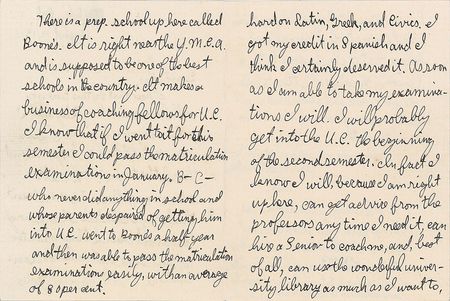 There is a prep. school up here called
Boone's. It is right near the Y.M.C.A.
and is supposed to be one of the best
schools in the country. It makes a
business of coaching fellows for U.C.
I know that if I went to it for this
semester I could pass the matriculation
examinations in January. B- C-
who never did anything in school and
whose parents despaired of getting him
into U.C. went to Boone's a half-year
and then was able to pass the matriculation
examination easily, with an average
of 80 per cent.
hard on Latin, Greek, and Civics. I
got my credit in Spanish and I
think I certainly deserved it. As soon
as I am able to take my examina-
tions I will. I will probably
get into the U.C. the beginning
of the second semester. In fact I
know I will, because I am right
up here, can get advice from the
professors any time I need it, can
hire a Senior to coach me, and, best
of all, can use the wonderful univer-
sity library as much as I want to,